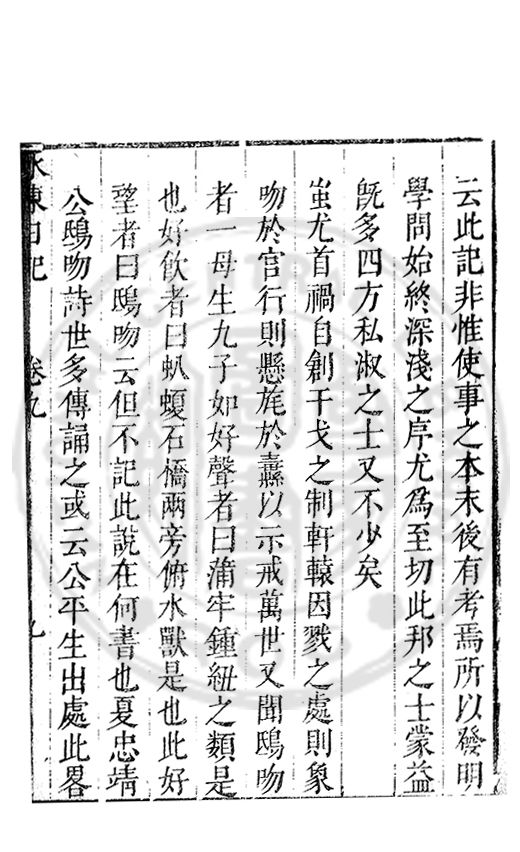 云此記非惟使事之本末後有考焉所以發明
學問始終深淺之序尤爲至切此邦之士蒙益
旣多四方私淑之士又不少矣
蚩尤首禍自創干戈之制軒轅因戮之處則象
吻於宫行則懸旄於纛以示戒萬世又聞鴟吻
者一母生九子如好聲者曰蒲牢鍾紐之類是
也好飲者曰𧈢蝮石橋兩旁俯水獸是也此好
望者曰鴟吻云但不記此說在何書也夏忠靖
公鴟吻詩世多傳誦之或云公平生出處此畧
水東日記 卷九 九